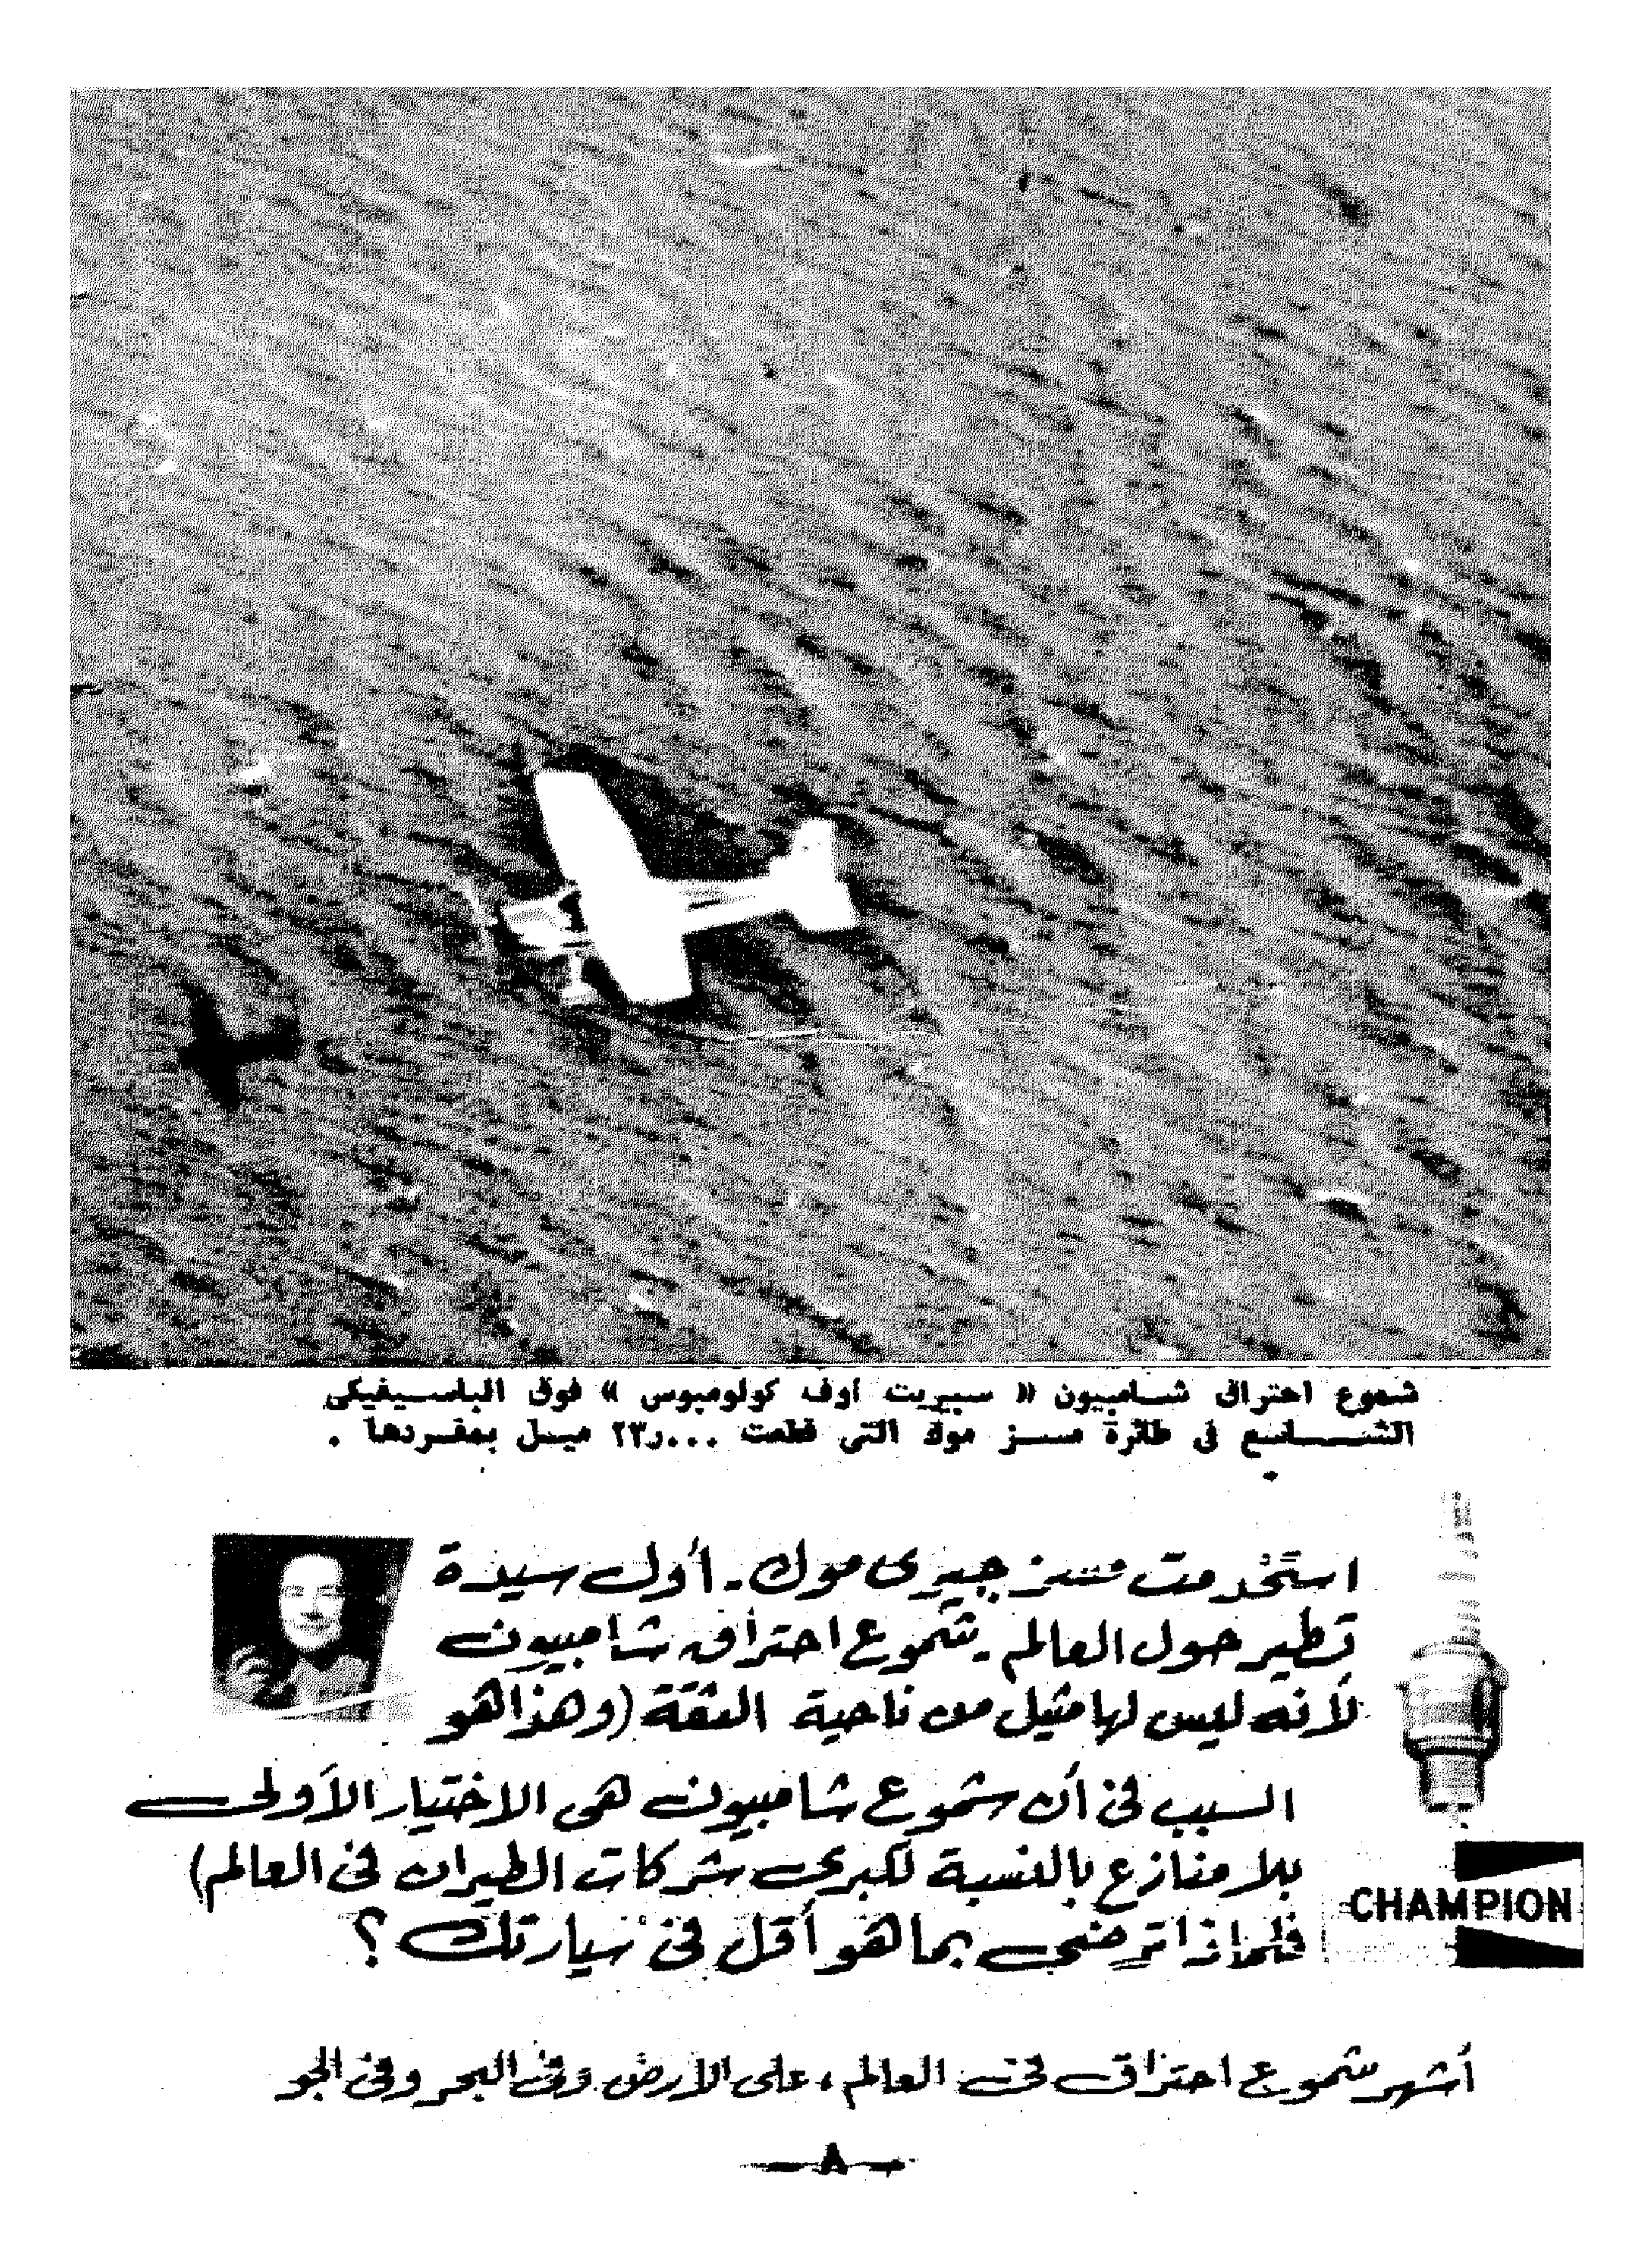 شموع احتراق شامبيون « سبيريت أوف كولومبوس » فوق الباسيفيكى
الشاسع فى طائرة مسز موك التى قطعت ٢٣٫٠٠٠ ميل بمفردها .
استخدمت مسز جيرى موك - أول سيدة
تطير حول العالم - شموع احتراق شامبيون
لأنه ليس لها مثيل من ناحية الثقة (وهذا هو
السبب فى أن شموع شامبيون هى الاختيار الأولى
بلا منازع بالنسبة لكبرى شركات الطيران فى العالم)
فلماذا ترضى بما هو أقل فى سيارتك ؟
CHAMPION
أشهر شموع احتراق فى العالم ، على الأرض وفى البحر وفى الجو
— ٨ —